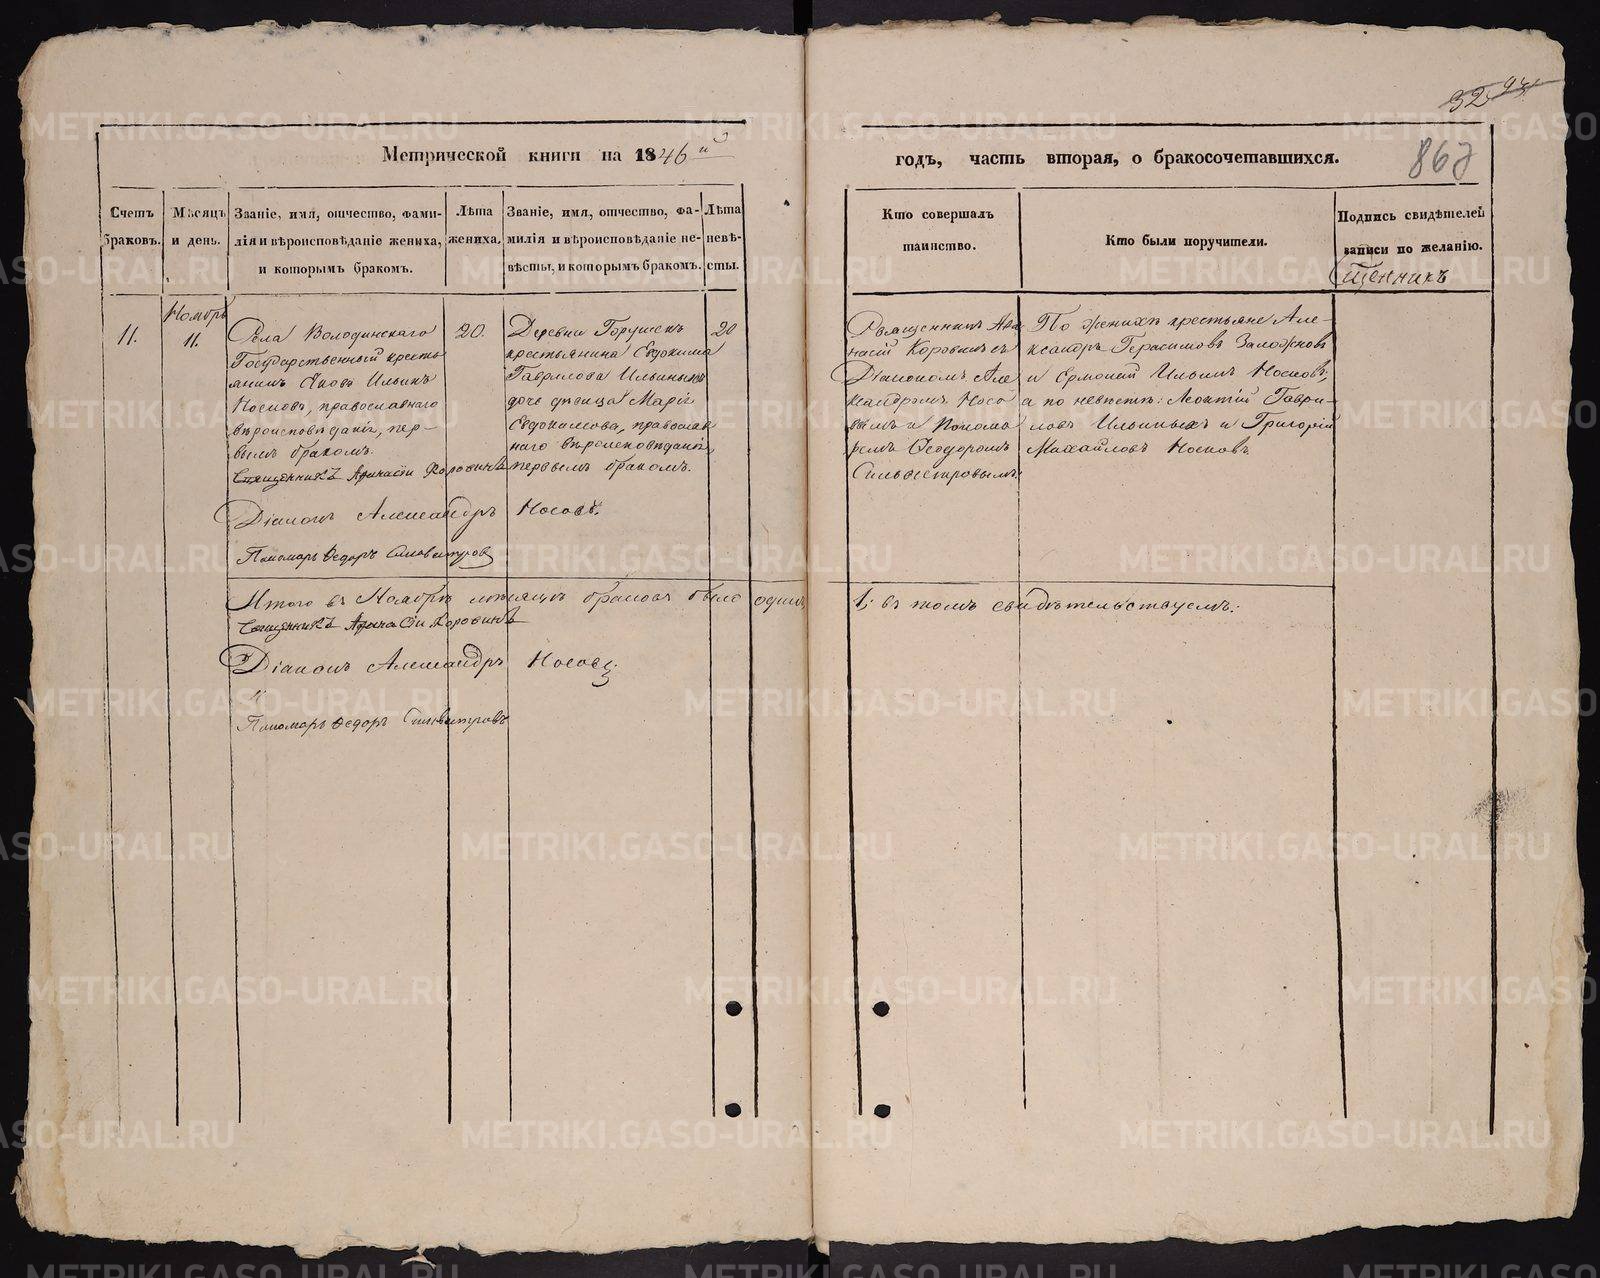 32 94
867
Метрической книги на 1846й
годъ, часть вторая, о бракосочетавшихся.
Счетъ браковъ.
Мѣсяцъ и день.
Званіе, имя, отчество, фами-
лія и вѣроисповѣданіе жениха,
и которымъ бракомъ.
Лѣта
жениха.
Званіе, имя, отчество, фа-
милія и вѣроисповѣданіе не-
вѣсты, и которымъ бракомъ.
Лѣта
невѣ-
сты.
Кто совершалъ
таинство.
Кто были поручители.
Подпись свидѣтелей
записи по желанію.
щенникъ
11.
Ноябрь
11.
Села Володинскаго
Государственный кресть
янинъ Яковъ Ильинъ
Носковъ, православнаго
вѣроисповѣданія, пер-
вымъ бракомъ.
20.
Деревни Горушекъ
крестьянина Евдокима
Гаврилова Ильиныхъ
дочь дѣвица Марія
Евдокимова, православ
наго вѣроисповѣданія,
первымъ бракомъ.
20
Священникъ Афа
насій Коровинъ съ
Діакономъ Але
ксандромъ Носо
вымъ и Понома
ремъ Ѳеодоромъ
Сильвестровымъ.
По женихѣ крестьяне Але-
ксандръ Герасимовъ Заложновъ
и Ермолай Ильинъ Носковъ;
а по невѣстѣ: Леонтій Гаври-
ловъ Ильиныхъ и Григорій
Михайловъ Носковъ.
Священникъ Афанасій Коровинъ
Діаконъ Александръ Носовъ.
Пономарь Ѳедоръ Сильвестровъ
Итого въ Ноябрѣ мѣсяцѣ браковъ было одинъ 1, въ томъ свидѣтельствуемъ:
Священникъ Афанасій Коровинъ
Діаконъ Александръ Носовъ
и
Пономарь Ѳедоръ Сильвестровъ
METRIKI.GASO-URAL.RU